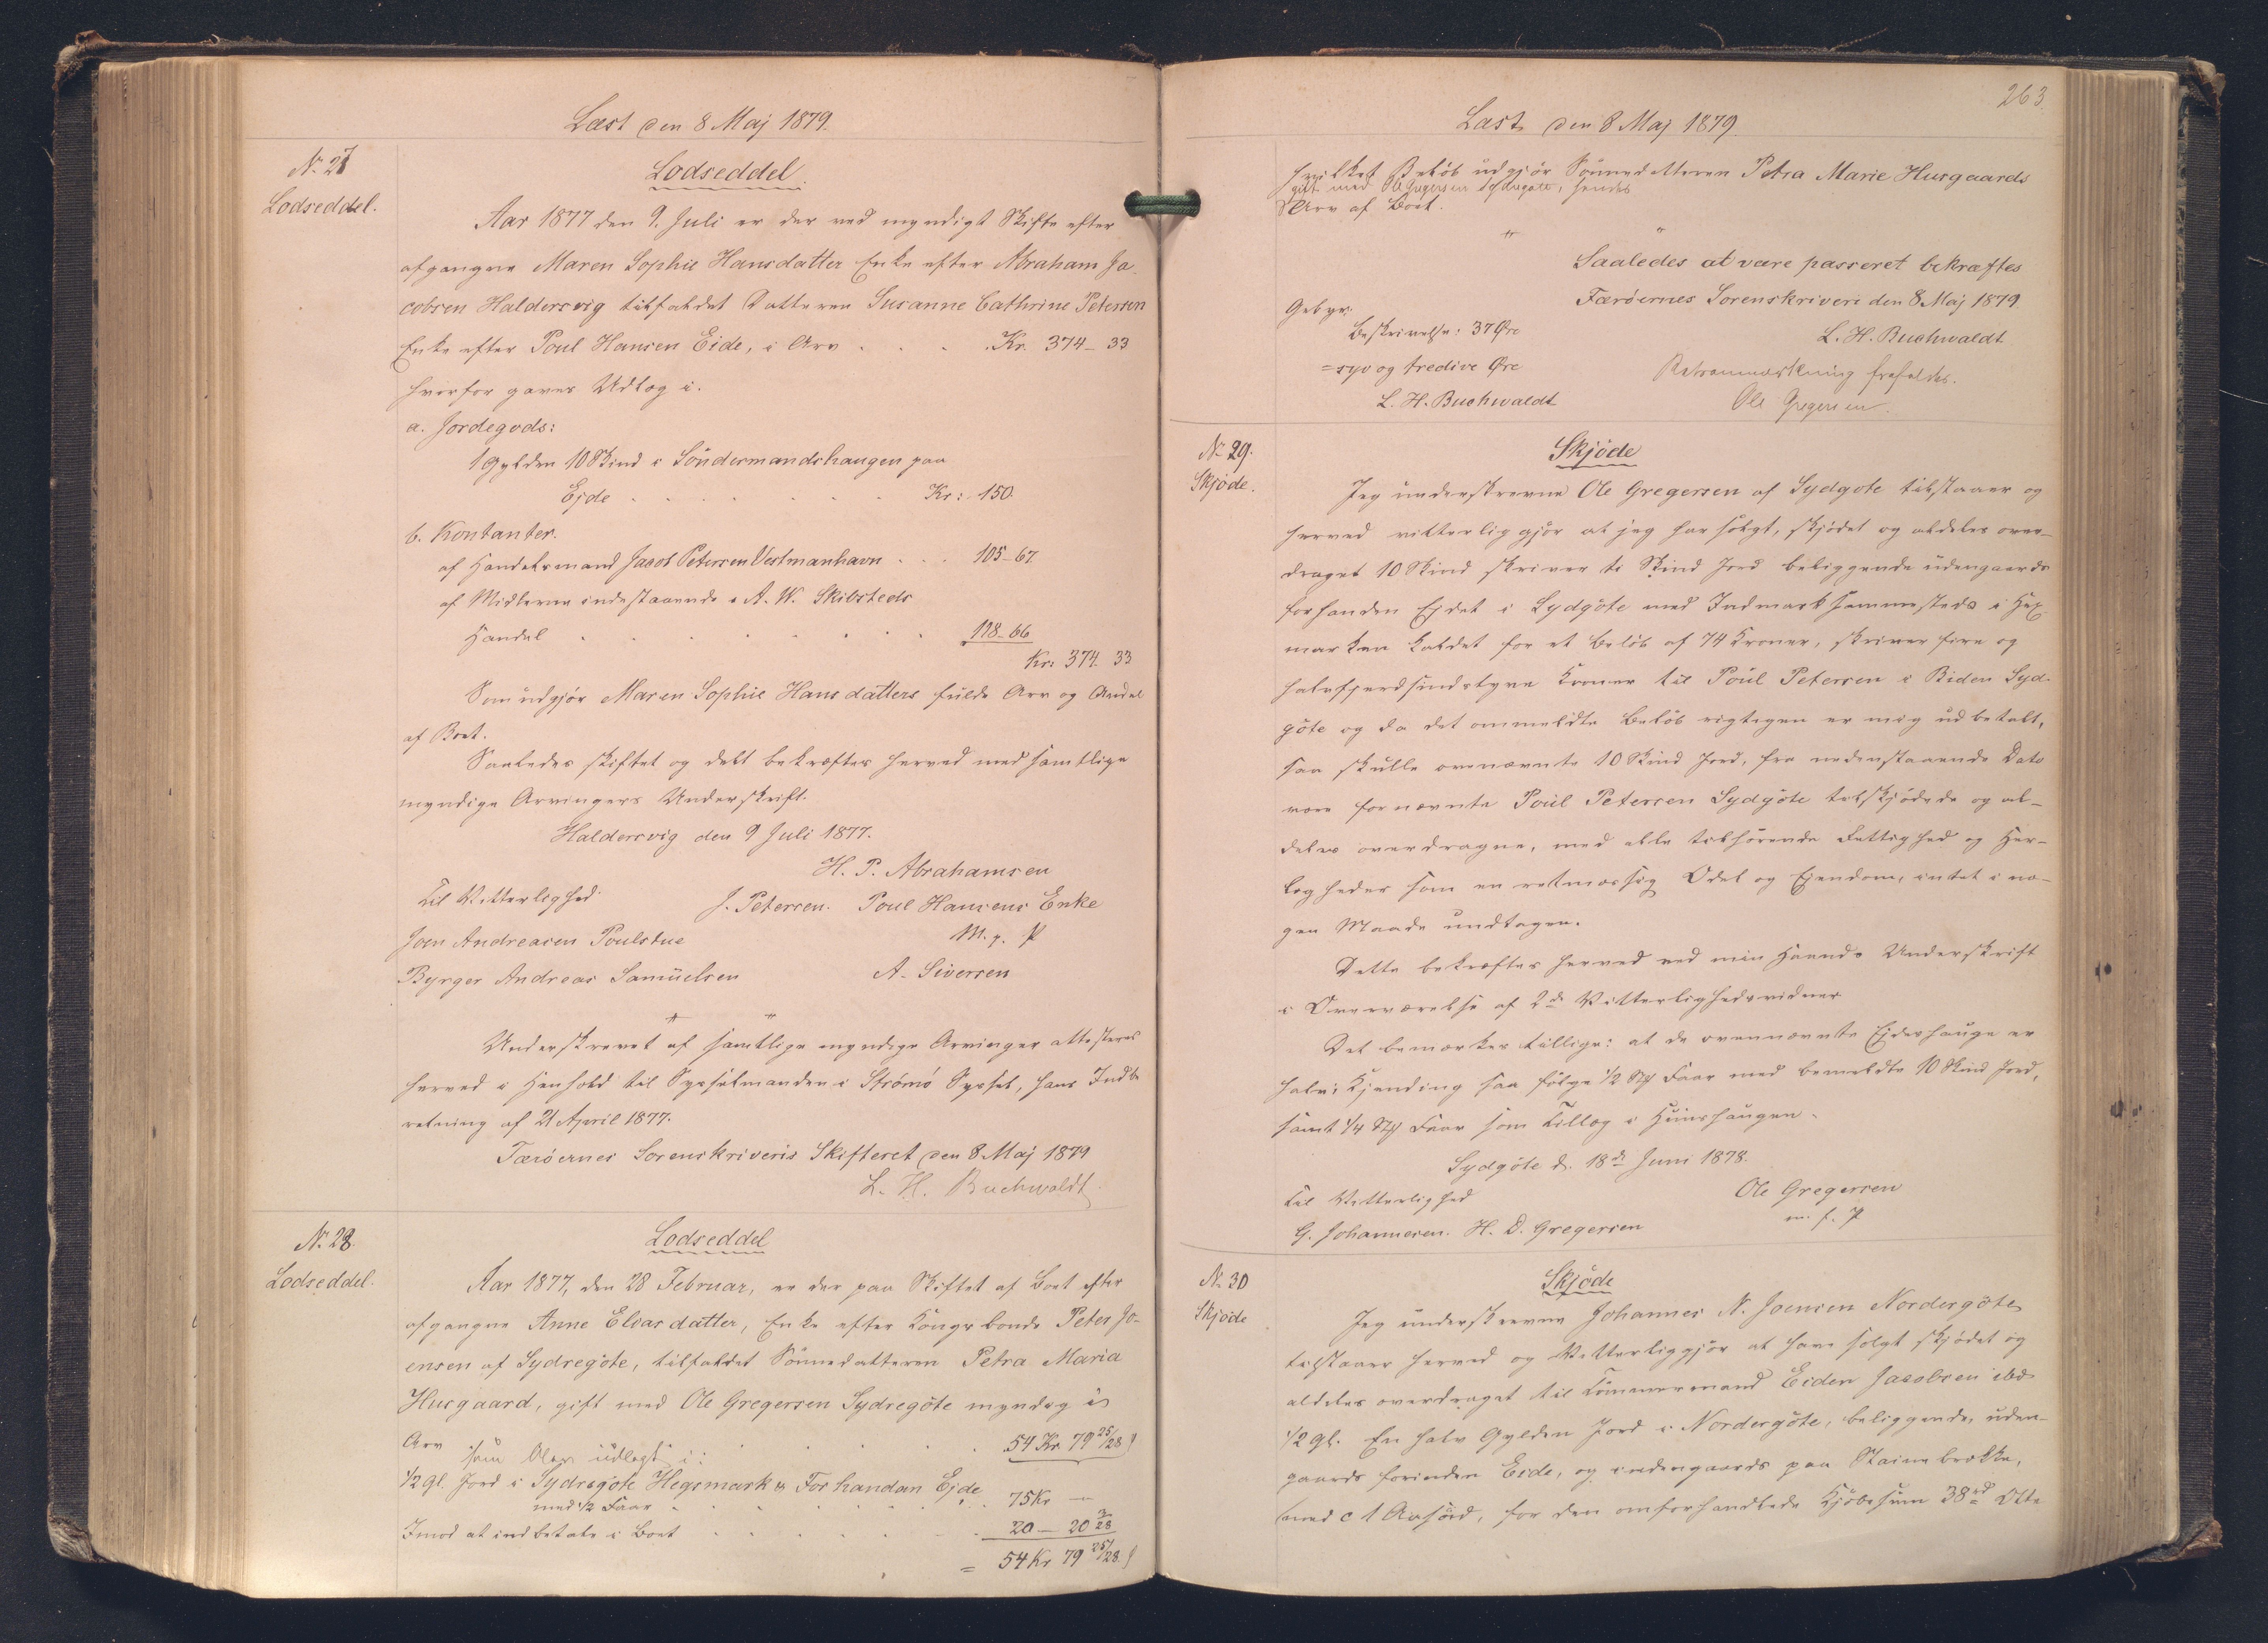 Læst den 8 Maj 1879.
No 27
Lodseddel.
Lodseddel.
Aar 1877 den 9. Juli er der ved myndigt Skifte efter
afgangne Maren Sophie Hansdatter Enke efter Abraham Ja-
cobsen Haldersvig tilfaldet Datteren Susanne Cathrine Petersen
Enke efter Poul Hansen Eide, i Arv . . . . Kr. 374-33
hvorfor gaves Udlæg i.
a. Jordegods:
1 Gylden 10 Skind i Söndermandshaugen paa
Ejde . . . . . . . Kr: 150.
b. Kontanter.
af Handelsmand Jacob Petersen Vestmanhavn . . . 105-67
af Midlerne indestaaende i A. W. Skibsteds
Handel . . . . . . . . 118-66
Kr: 374. 33
Som udgjør Maren Sophie Hansdatters fulde Arv og Andel
af Boet.
Saaledes skiftet og delt bekræftes herved med samtlige
myndige Arvingers Underskrift.
Haldersvig den 9 Juli 1877.
H. P. Abrahamsen
Til Vitterlighed J. Petersen. Poul Hansens Enke
Joen Andreasen Poulstue M. f. P
Byrger Andreas Samüelsen A. Siversen
Underskrevet af samtlige myndige Arvinger attesteres
herved i Henhold til Sysselmanden i Strömö Syssel, hans Indbe
retning af 21 April 1877.
Færöernes Sorenskriveris Skifteret den 8 Maj 1879
L. H. Buchwaldt
No 28.
Lodseddel.
Lodseddel
Aar 1877, den 28 Februar, er der paa Skiftet af Boet efter
afgangne Anne Eliasdatter, Enke efter Kongsbonde Peter Jo-
ensen af Sydregöte, tilfaldet Sönnedatteren Petra Maria
Husgaard, gift med Ole Gregersen Sydregöte myndig i
Arv . . . . . . . 54 Kr 79 25/28
som blev üdlagt i:
1/2 Gl. Jord i Sydregöte Hegsmark & Forhandan Ejde
med 1/2 Faar . . . . . . . 75 Kr —
Imod at indbetale i Boet . . . . . . 20 — 20 3/28
= 54 Kr 79 25/28
263.
Læst den 8 Maj 1879.
hvilket Beløb udgjör Sönnedatteren Petra Marie Husgaards
gift med Ole Gregersen Sydregöte, hendes
Arv af Boet.
Saaledes at være passeret bekræftes
Færöernes Sorenskriveri den 8 Maj 1879
Gebyr:
L. H. Buchwaldt
Beskrivelse: 37 Øre
= syv og tredive Øre
L. H. Buchwaldt
Retsanmærkning frafaldes.
Ole Gregersen.
No 29.
Skjöde.
Skjöde
Jeg underskrevne Ole Gregersen af Sydgöte tilstaaer og
herved vitterliggjör at jeg har solgt, skjödet og aldeles over-
draget 10 Skind skriver ti Skind Jord beliggende üdengaards
forhanden Ejdet i Sydgöte med Indmark sammesteds i Heg-
marken kaldet for et Belöb af 74 Kroner, skriver fire og
halvfjerdsindstyve Kroner til Poül Petersen i Biden Syd-
göte og da det ommeldte Belöb rigtigen er mig üdbetalt,
saa skulle ovennævnte 10 Skind Jord, fra nedenstaaende Dato
være fornævnte Poül Petersen Sydgöte tilskjödede og al-
deles overdragne, med alle tilhörende Rettighed og Her-
ligheder som en retmæssig Odel og Ejendom, intet i no-
gen Maade undtagen.
Dette bekræftes herved ved min Haands Underskrift
i Overværelse af 2de Vitterlighedsvidner
Det bemærkes tillige: at de ovennævnte Ejdeshauge er
halv Kjending saa fölge 1/2 Stk Faar med bemeldte 10 Skind Jord,
samt 1/4 Stk Faar som Tillæg i Huushaugen.
Sydgöte d. 18de Juni 1878.
Til Vitterlighed Ole Gregersen
G. Johannesen. H. D. Gregersen m. f. P
No 30
Skjöde
Skjöde
Jeg ünderskrevne Johannes N. Joensen Nordergöte
tilstaaer herved og Vitterliggjör at have solgt skjödet og
aldeles overdraget til Tömmermand Eiden Jacobsen ibd
1/2 Gl. En halv Gylden Jord i Nordergöte, beliggende, uden-
gaards forinden Eide, og indengaards paa Steinebrekke,
med c 1 Aasöid, for den omforhandlede Kjöbesum 38rd Otte